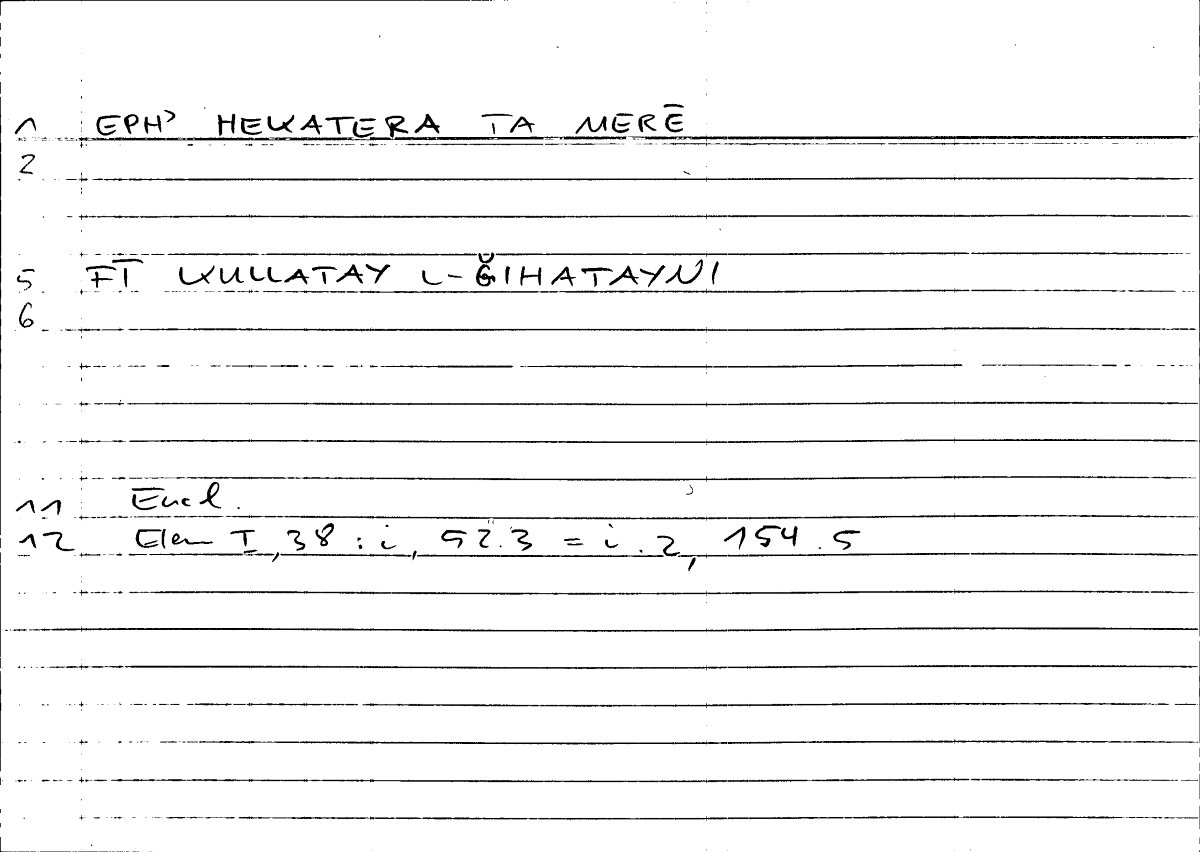 1 EPH' HEKATERA TA MERĒ
2
5 FĪ KULLATAY L-ǦIHATAYNI
6
11 Eucl.
12 Elem I, 38 : i, 92.3 = i.2, 154.5